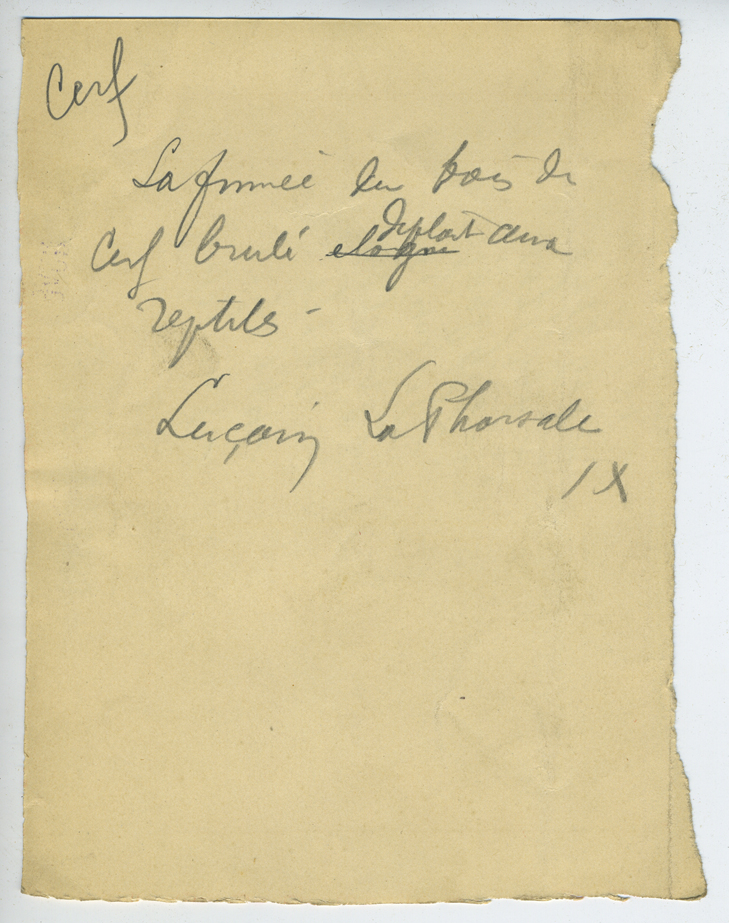 Cerf
La fumée du bois de
Cerf brulé eloigne deplait aux
reptiles -
Luçain La Pharsale
IX